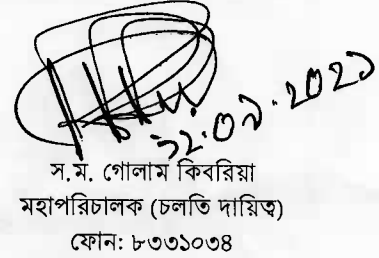 ১২.০৯.২০২১
স.ম. গোলাম কিবরিয়া
মহাপরিচালক (চলতি দায়িত্ব)
ফোন: ৮৩৩১০৩৪